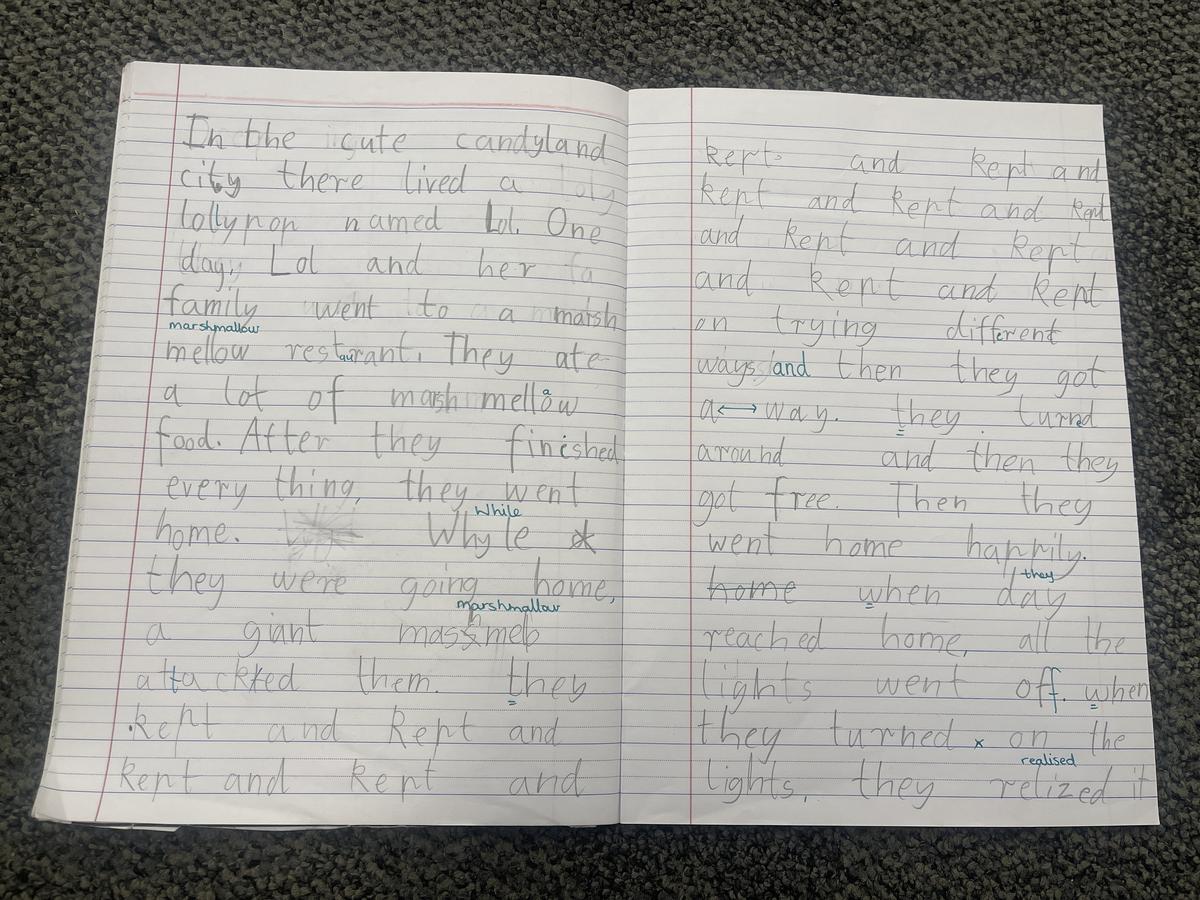 In the cute candyland
city there lived a loly
lollypop named Lol. One
day, Lol and her fa
family went to a marsh
marshmallow
mellow restaurant. They ate
a lot of marsh mellow
a
food. After they finished
every thing, they went
While
home. Whyle
they were going home,
marshmallow
a giant
attackted them. they
kept and kept and
kept and kept and
kept and kept and
kept and kept and kept
and kept and kept
and kept and kept
on trying different
ways and then they got
a ⟷ way. they turnd
around and then they
got free. Then they
went home happily.
they
home when day
reached home, all the
lights went off. when
they turned x on the
realised
lights, they relized it